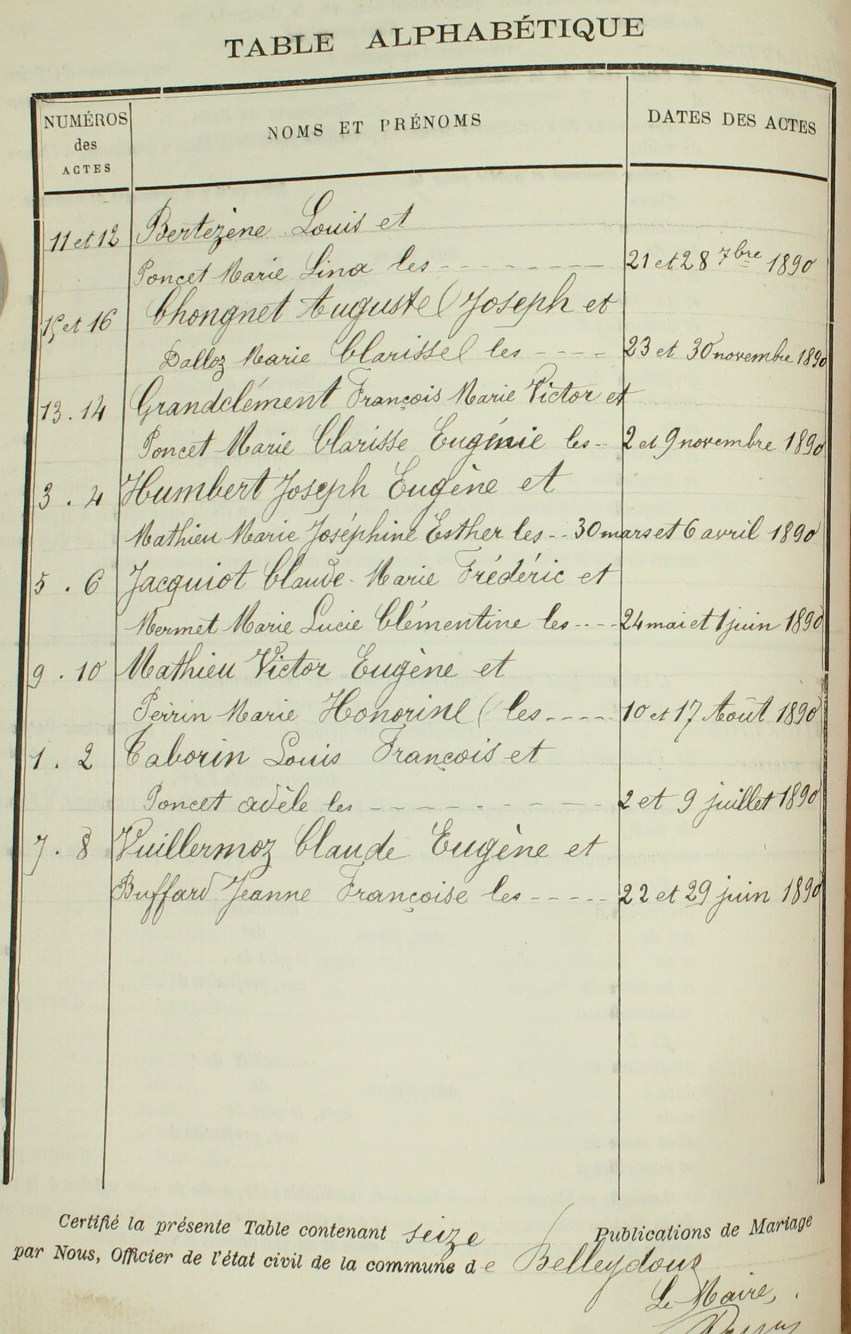 TABLE ALPHABÉTIQUE
NUMÉROS des ACTES NOMS ET PRÉNOMS DATES DES ACTES
11 et 12 Bertezène Louis et
Poncet Marie Lina les 21 et 28 7bre 1890
15 et 16 Chongnet Auguste Joseph et
Dalloz Marie Clarisse les 23 et 30 novembre 1890
13 . 14 Grandclément François Marie Victor et
Poncet Marie Clarisse Eugénie les 2 et 9 novembre 1890
3 . 4 Humbert Joseph Eugène et
Mathieu Marie Joséphine Esther les 30 mars et 6 avril 1890
5 . 6 Jacquiot Claude Marie Frédéric et
Mermet Marie Lucie Clémentine les 24 mai et 1 juin 1890
9 . 10 Mathieu Victor Eugène et
Perrin Marie Honorine les 10 et 17 Août 1890
1 . 2 Taborin Louis François et
Poncet adèle les 2 et 9 juillet 1890
7 . 8 Vuillermoz Claude Eugène et
Buffard Jeanne Françoise les 22 et 29 juin 1890
Certifié la présente Table contenant seize Publications de Mariage
par Nous, Officier de l'état civil de la commune de Belleydoux
Le Maire,